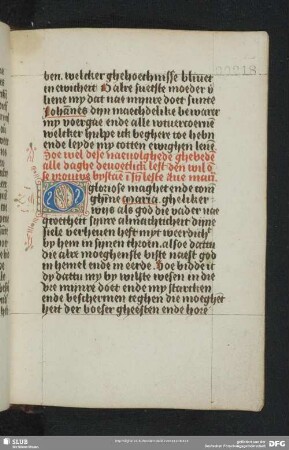 ben. welcker ghehoechnisse blivet
in ewicheit O alre suetste moeder v
liene my dat nae mynre doet sunte
Johannes dyn maechdelike bewarer
my voergae ende alle
welcker hulpe ick beghere toe heb
ende leyde my totten ewighen leue
Soe wel dese naeuolghede ghebede
alle daghe deuoetlick lest den wil
se vrouwe bystaen i syn leste Aue mari
O gloriose maghet ende coni
ghinne maria. ghelikerr
wijs als god die vader nae
groetheit syn almachticheit dijnre
siele verheuen heft myt weerdich
by hem in synen throen. alsoe dattu
die alre moeghenste biste naest god
in hemel ende in eerde. Soe bidde ic
dy dattu my by wilste wesen in die
vre mynre doet ende my starcken
ende beschermen teghen die moeghen
heit der boeser gheesten ende hoer
SLUB
DFG